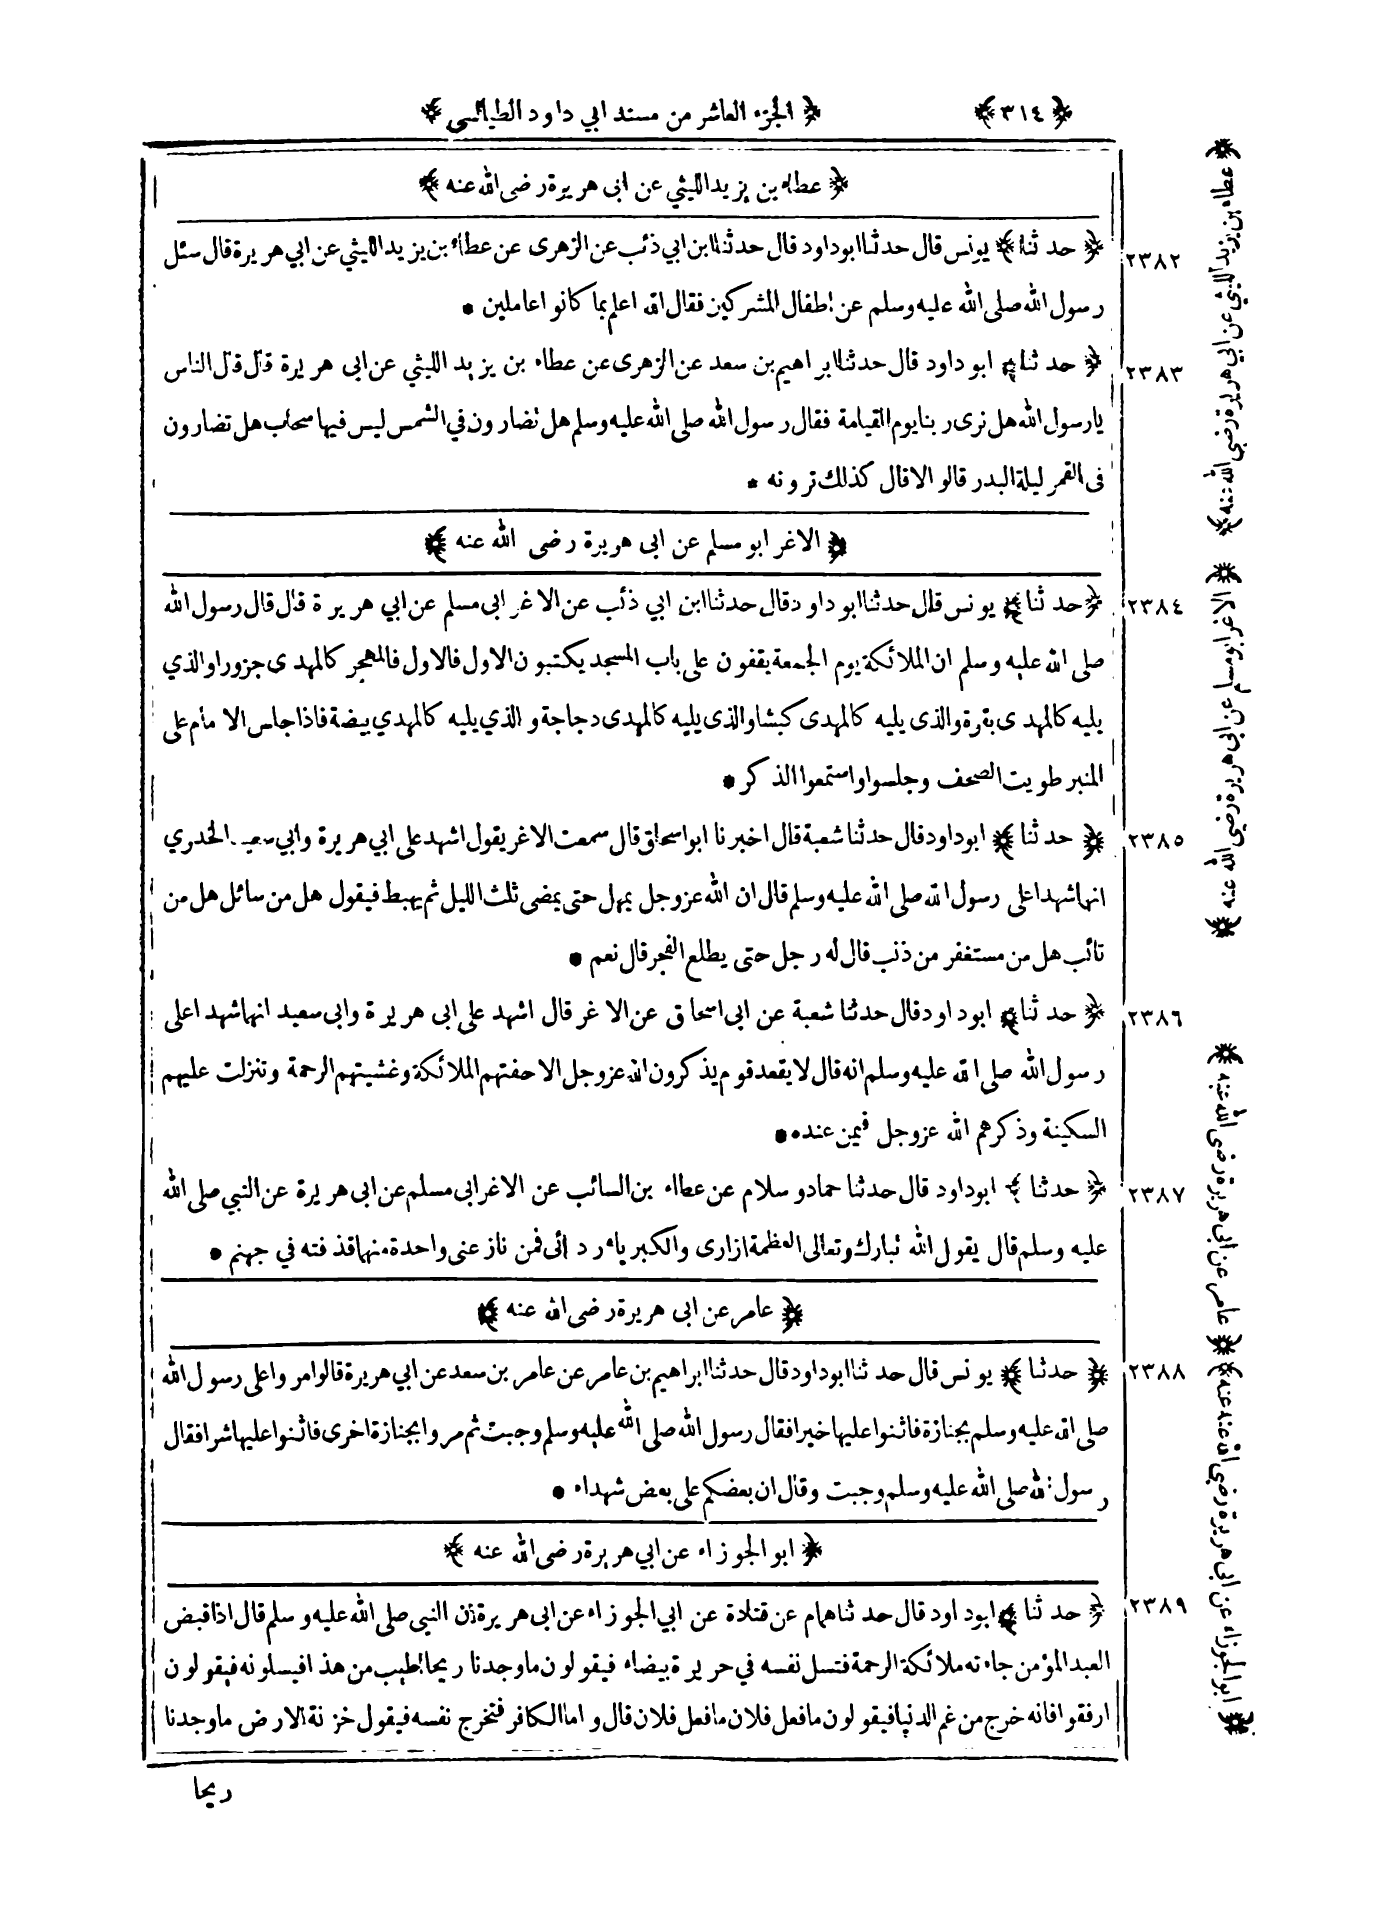 ﴿ ٣١٤ ﴾ ﴿ الجزء العاشر من مسند ابي داود الطيالسي ﴾
﴿ عطاء بن يزيد الليثي عن ابى هريرة رضى الله عنه ﴾
٢٣٨٢ ﴿ حدثنا ﴾ يونس قال حدثنا ابوداود قال حدثنا ابن ابي ذئب عن الزهرى عن عطاء بن يزيد الليثي عن ابي هريرة قال سئل
رسول الله صلى الله عليه وسلم عن اطفال المشركين فقال الله اعلم بما كانوا عاملين *
٢٣٨٣ ﴿ حدثنا ﴾ ابوداود قال حدثنا ابراهيم بن سعد عن الزهرى عن عطاء بن يزيد الليثي عن ابى هريرة قال قال الناس
يارسول الله هل نرى ربنا يوم القيامة فقال رسول الله صلى الله عليه وسلم هل تضارون في الشمس ليس فيها سحاب هل تضارون
فى القمر ليلة البدر قالوا لا قال كذلك ترونه *
﴿ الاغر ابو مسلم عن ابى هريرة رضى الله عنه ﴾
٢٣٨٤ ﴿ حدثنا ﴾ يونس قال حدثنا ابوداود قال حدثنا ابن ابي ذئب عن الاغر ابى مسلم عن ابي هريرة قال قال رسول الله
صلى الله عليه وسلم ان الملائكة يوم الجمعة يقفون على باب المسجد يكتبون الاول فالاول فالمهجر كالمهدى جزورا والذي
يليه كالمهدى بقرة والذى يليه كالمهدى كبشا والذى يليه كالمهدى دجاجة والذي يليه كالمهدي بيضة فاذا جلس الامام على
المنبر طويت الصحف وجلسوا واستمعوا الذكر *
٢٣٨٥ ﴿ حدثنا ﴾ ابوداود قال حدثنا شعبة قال اخبرنا ابو اسحاق قال سمعت الاغر يقول اشهد على ابي هريرة وابي سعيد الخدري
انهما شهدا على رسول الله صلى الله عليه وسلم قال ان الله عزوجل يمهل حتى يمضى ثلث الليل ثم يهبط فيقول هل من سائل هل من
تائب هل من مستغفر من ذنب قال له رجل حتى يطلع الفجر قال نعم *
٢٣٨٦ ﴿ حدثنا ﴾ ابوداود قال حدثنا شعبة عن ابى اسحاق عن الاغر قال اشهد على ابى هريرة وابى سعيد انهما شهدا على
رسول الله صلى الله عليه وسلم انه قال لا يقعد قوم يذكرون الله عزوجل الا حفتهم الملائكة وغشيتهم الرحمة وتنزلت عليهم
السكينة وذكرهم الله عزوجل فيمن عنده *
٢٣٨٧ ﴿ حدثنا ﴾ ابوداود قال حدثنا حماد وسلام عن عطاء بن السائب عن الاغر ابى مسلم عن ابى هريرة عن النبي صلى الله
عليه وسلم قال يقول الله تبارك وتعالى العظمة ازارى والكبرياء ردائى فمن نازعنى واحدة منها قذفته في جهنم *
﴿ عامر عن ابى هريرة رضى الله عنه ﴾
٢٣٨٨ ﴿ حدثنا ﴾ يونس قال حدثنا ابوداود قال حدثنا ابراهيم بن عامر عن عامر بن سعد عن ابي هريرة قالوا مروا على رسول الله
صلى الله عليه وسلم بجنازة فاثنوا عليها خيرا فقال رسول الله صلى الله عليه وسلم وجبت ثم مروا بجنازة اخرى فاثنوا عليها شرا فقال
رسول الله صلى الله عليه وسلم وجبت وقال ان بعضكم على بعض شهداء *
﴿ ابو الجوزاء عن ابي هريرة رضى الله عنه ﴾
٢٣٨٩ ﴿ حدثنا ﴾ ابوداود قال حدثنا همام عن قتادة عن ابي الجوزاء عن ابى هريرة ان النبى صلى الله عليه وسلم قال اذا قبض
العبد المؤمن جاءته ملائكة الرحمة فتسل نفسه في حريرة بيضاء فيقولون ما وجدنا ريحا اطيب من هذا فيسلونه فيقولون
ارفقوا فانه خرج من غم الدنيا فيقولون ما فعل فلان ما فعل فلان قال واما الكافر فتخرج نفسه فيقول خزنة الارض ما وجدنا
ريحا
﴿ عطاء بن يزيد الليثي عن ابي هريرة رضى الله عنه ﴾
﴿ الاغر ابو مسلم عن ابى هريرة رضى الله عنه ﴾
﴿ عامر عن ابى هريرة رضى الله عنه ﴾
﴿ ابو الجوزاء عن ابى هريرة رضى الله عنه ﴾